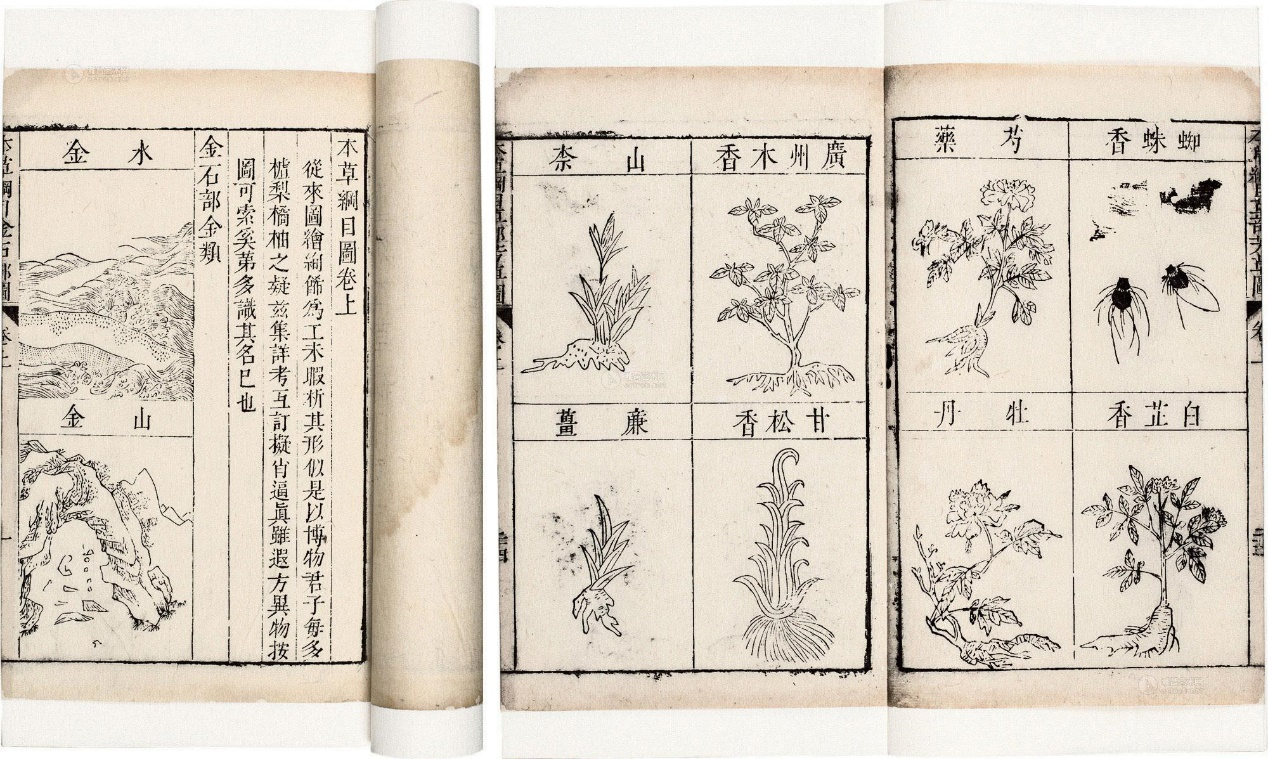 本草綱目圖卷上
從來圖繪絢飾爲工未暇析其形似是以博物君子每多
櫨梨橘柚之疑茲集詳考互訂擬肖逼眞雖遐方異物按
圖可索矣第多識其名已也
金石部金類
水金
山金
蜘蛛香
芍藥
白芷香
牡丹
廣州木香
山柰
甘松香
廉薑